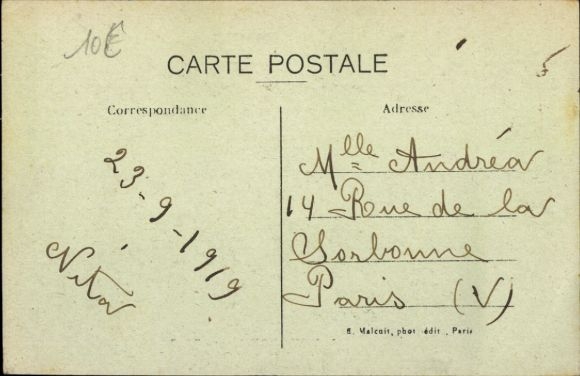 10€
CARTE POSTALE
Correspondance
Adresse
23-9-1919
Nita
Mlle Andréa
14 Rue de la
Sorbonne
Paris (V)
E. Malcuit, phot. édit., Paris